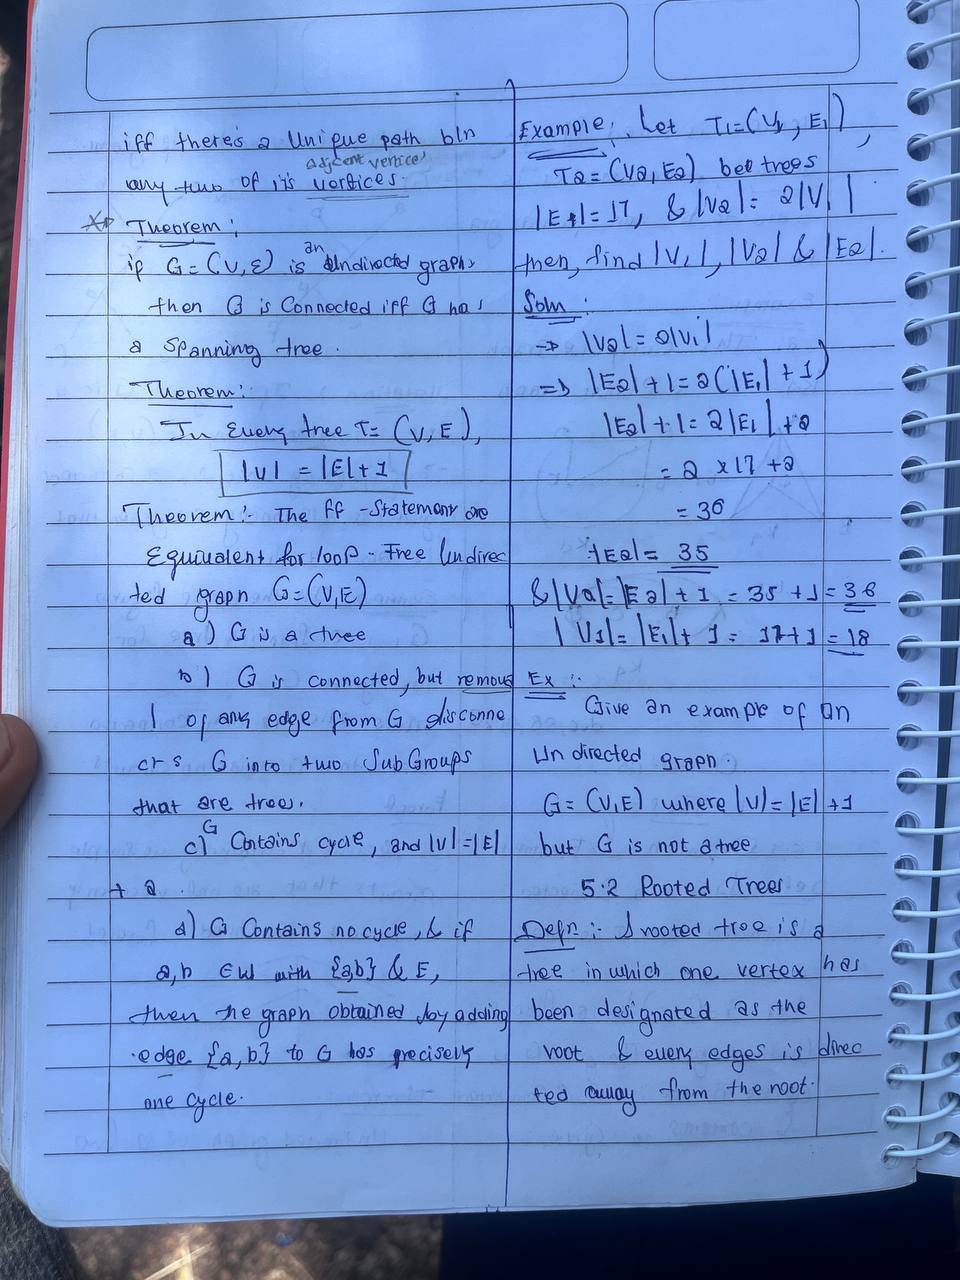 iff there's a Unique path btn
adjcent vertices
any two of its vertices.
Theorem:
if G=(V,E) is an Undirected graph,
then G is Connected iff G has
a Spanning tree.
Theorem:
In Every tree T= (V,E),
|V| = |E|+1
Theorem:- The ff -Statement are
Equivalent for loop-Free Undirec
ted graph G=(V,E)
a) G is a tree
b) G is connected, but remova
l of any edge from G disconne
cts G into two SubGroups
that are tree.
c) G Contains cycle, and |V|=|E|
+ 2.
d) G Contains no cycle, & if
a,b ∈ W with {a,b} & E,
then the graph obtained by adding
edge {a,b} to G has precisely
one cycle.
Example: Let T1=(V1, E1),
T2=(V2,E2) bee trees
|E1|=17, & |V2|= 2|V1|
then, find |V1|, |V2| & |E2|.
Soln:
→ |V2|=2|V1|
=> |E2|+1=2(|E1|+1)
|E2|+1=2|E1|+2
= 2 x17 +2
= 36
|E2|= 35
& |V2|=|E2|+1 = 35+1=36
|V1|=|E1|+1= 17+1=18
Ex:-
Give an example of an
Undirected graph.
G=(V,E) where |V|=|E|+1
but G is not a tree
5.2 Rooted Trees
Defn:- A rooted tree is a
tree in which one vertex has
been designated as the
root & every edges is direc
ted away from the root.